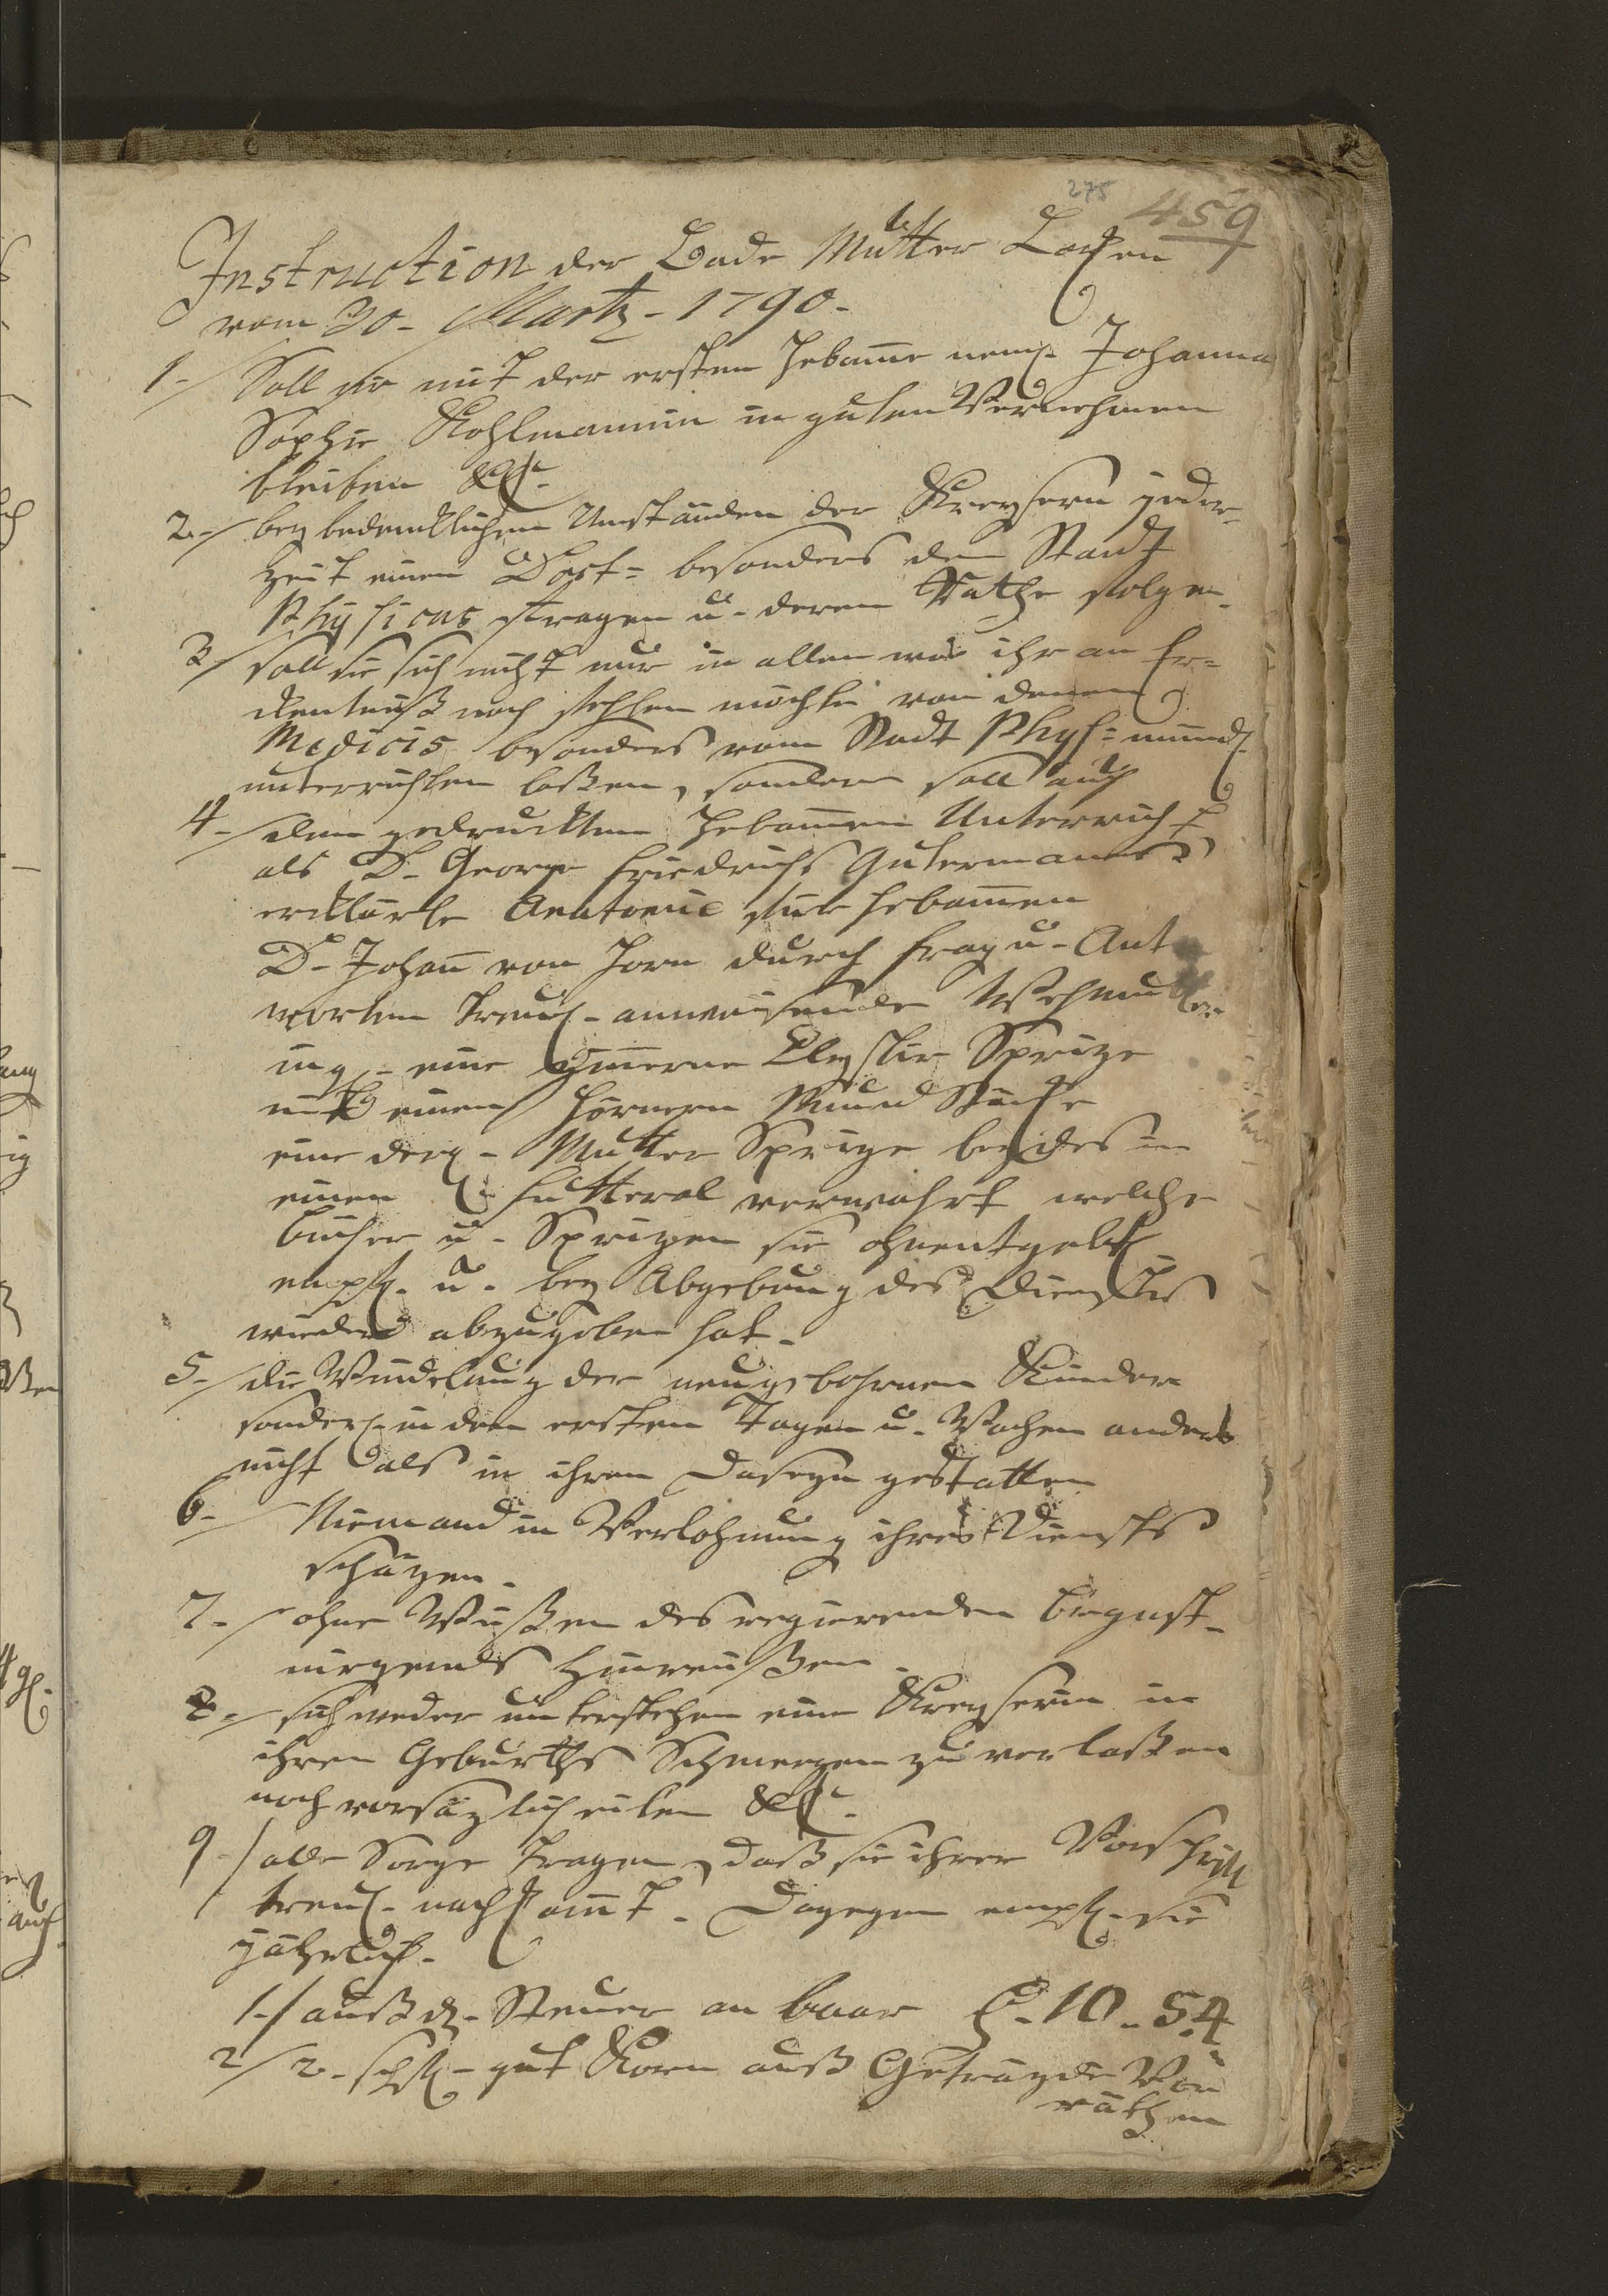 275
459
Instruction der Bade Mutter
vom 30. Martz. 1790.
1./ Soll sie mit der ersten Hebam̅e neml. Johanna
Sophie Kohlmannin in guten Vernehmen
bleiben &c.
2./ bey bedencklichen Umständen der Kreyserin jeder-
zeit einen Doct: besonders den Stadt
Physicus fragen u. deren Rathe folgen.
3./ soll sie sich nicht nur in allen was ihr an Er-
kentniß noch fehlen möchte von denen
Medicis besonders vom Stadt Phys: mündl.
unterrichten laßen, sondern soll auch
4./ den gedruckten Hebam̅en Unterricht
als D. George Friedrichs Gutermanns
erklärte Anatomie für Hebam̅en
D. Johan̅ von Horn durch Frag u. Ant
worten treul. anweisende Wehmutter
ing. eine zinnerne Clystir Sprize
mit einen Hörnern Mund Stücke
eine derg. Mutter Sprize beydes in
einen Futteral verwahrt welche
Bücher u. Sprizen sie ohnentgeltl.
empf. u. bey Abgebung des Dienstes
wieder abzugeben hat.
5./ die Windelung der neugebohrnen Kinder
sonderl. in den ersten Tagen u. Wochen anders
nicht als in ihren Daseyn gestatten
6./ Niemand in Verlohnung ihres Dienstes
schäzen.
7./ ohne Wißen des regierenden Burgmstr.
nirgends hinreißen.
8./ sich weder unterstehen eine Kreyserin in
ihren Geburths Schmerzen zu verlaßen
noch vorsäzlich eilen &c.
9./ alle Sorge tragen, daß sie ihrer Vorschrifft
treul. nachkom̅t. Dagegen empf. sie
jährlich.
1./ auß d. Steuer an baar 10. 54
2/ 2. schfl. gut Korn auß Geträyde Vor
räthen